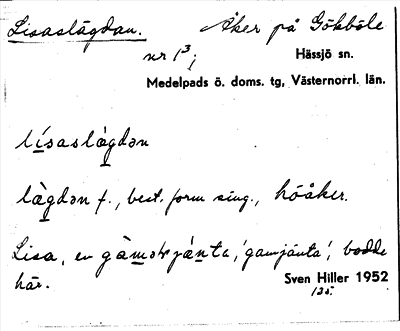 Lisaslägdan. Åker på Gökböle
nr 1³;
Hässjö sn.
Medelpads ö. doms. tg, Västernorrl. län.
lísaslàgdən
làgdən f., best. form sing., höåker.
Lisa, en gàməljä̀nta, 'gamjänta', bodde
här.
Sven Hiller 1952